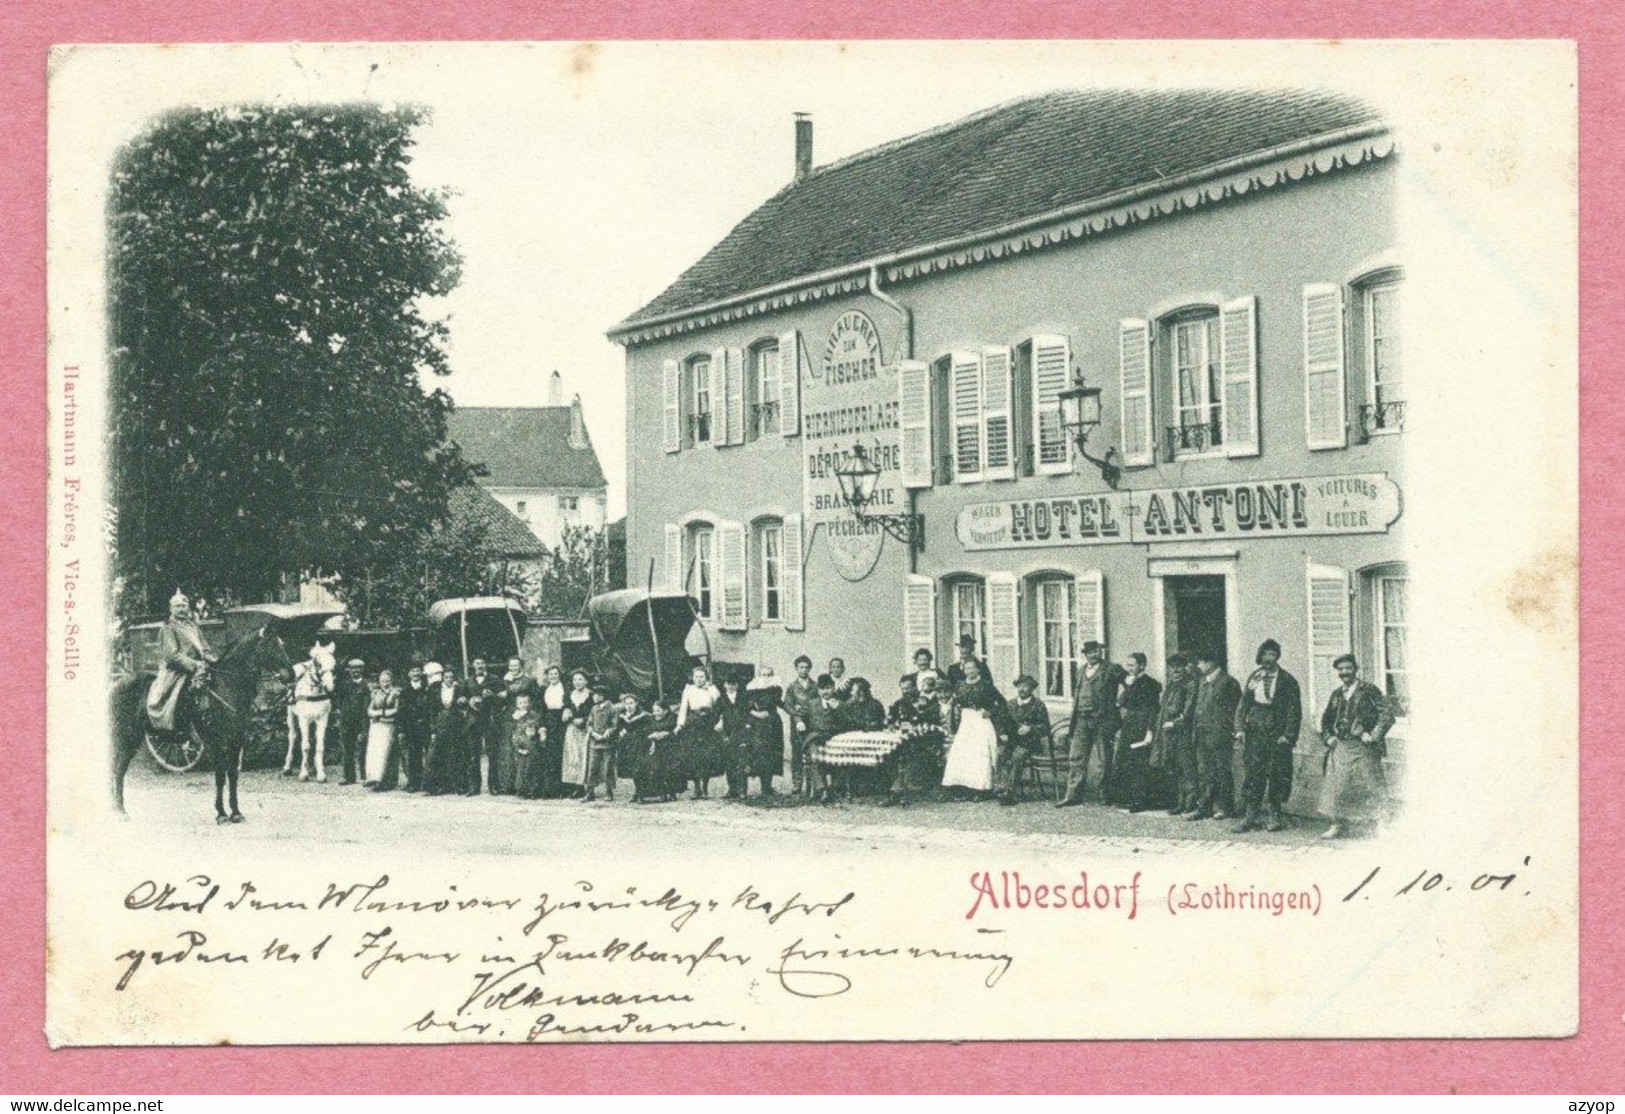 BRAUEREI
ZUM
FISCHER
BIERNIEDERLAGE
DÉPÔT BIÈRE
BRASSERIE
PÊCHEUR
WAGEN
VERMIETEN
HOTEL
ANTONI
VOITURES
À
LOUER
Hartmann Frères, Vic-s.-Seille
Albesdorf (Lothringen)
1. 10. 01.
Aus dem Manöver zurückgekehrt
gedenket Ihrer in dankbarster Erinnerung
Volkmann
Gendarm.
delcampe.net
azyop